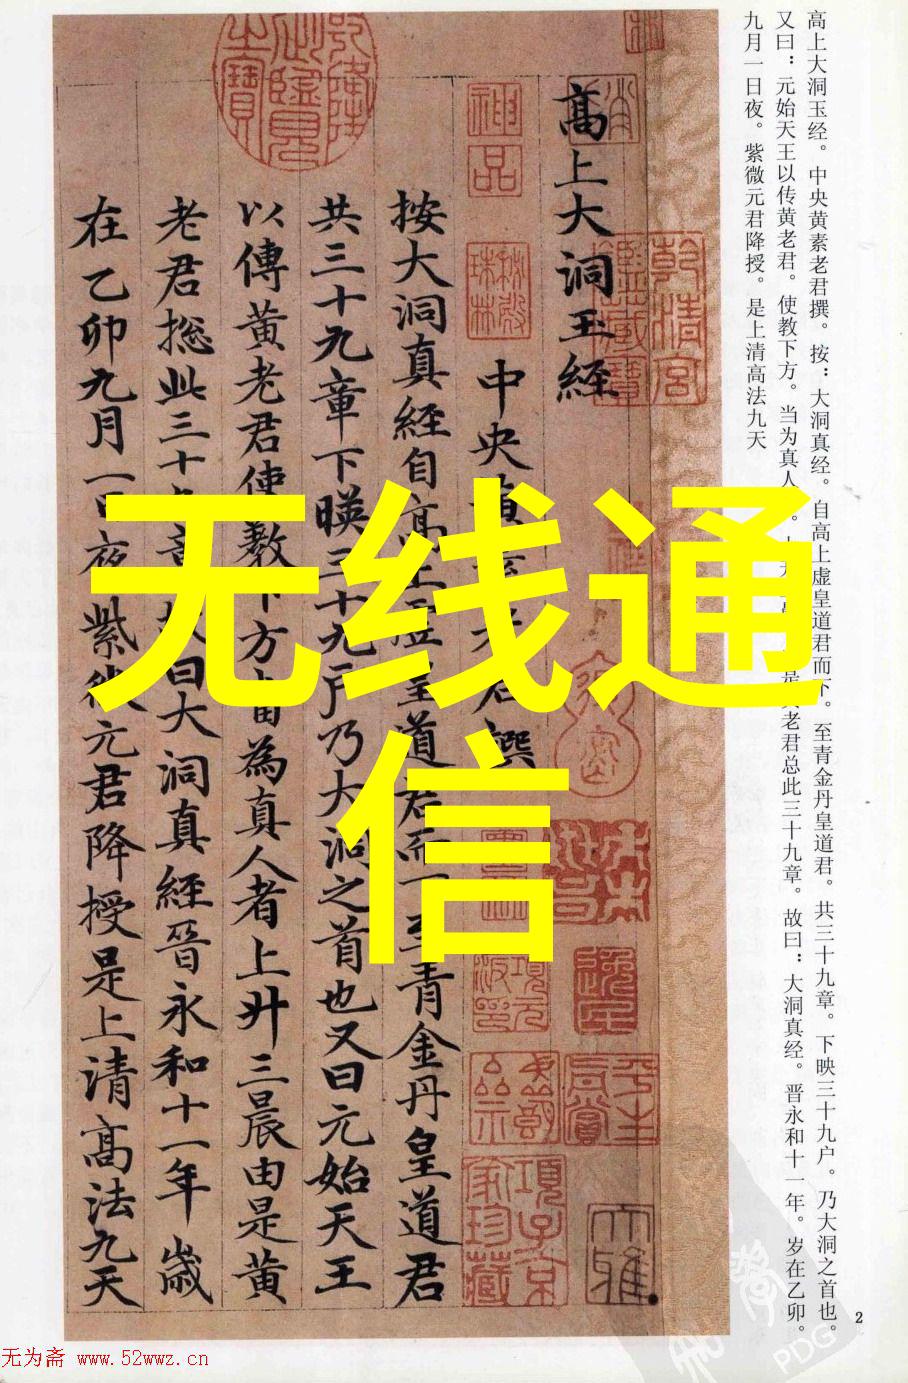 高上大洞玉经。中央黄素老君撰。按：大洞真经。自高上虚皇道君而下。至青金丹皇道君。共三十九章。下映三十九户。乃大洞之首也。
又曰：元始天王以传黄老君。使教下方。当为真人 是黄老君总此三十九章。故曰：大洞真经。晋永和十一年。岁在乙卯。
九月一日夜。紫微元君降授。是上清高法九天
高上大洞玉經
中央 老君撰
按大洞真經自高上虛皇道君而下至青金丹皇道君
共三十九章下暎三十九戶乃大洞之首也又曰元始天王
以傳黄老君使教下方當為真人者上升三晨由是黄
老君揔此三十九章故曰大洞真經晉永和十一年歲
在乙卯九月一日夜紫微元君降授是上清高法九天
神品
乾清宫鑑藏寶
项子京家珍藏
无线通
信
2
PDG
无为斋 www.52wwz.cn